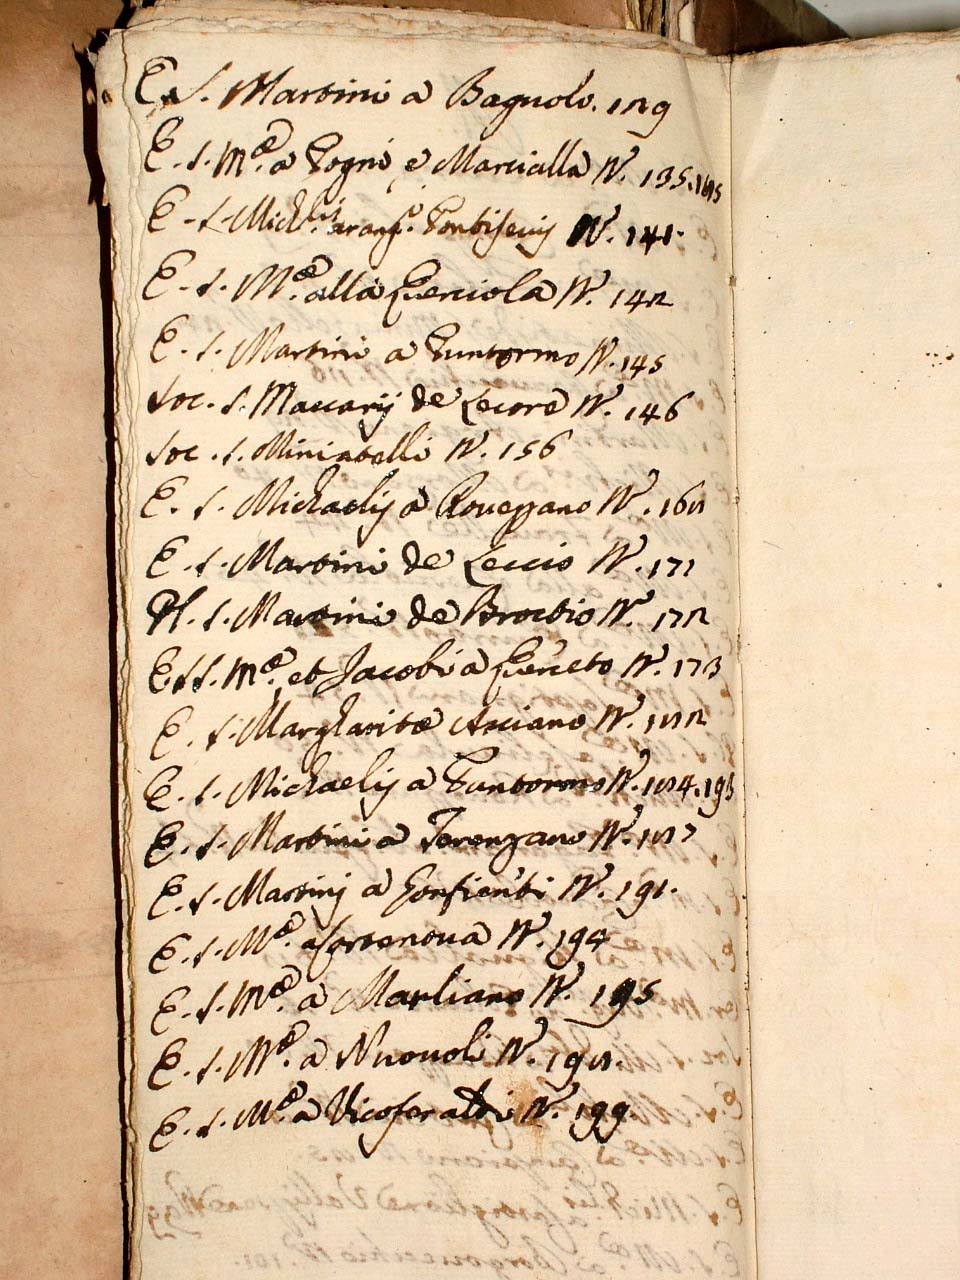 E. S. Martini a Bagnolo. 129
E. S. Mᵉ. a Pogni e Marcialla N. 135.
E. S. Michˡⁱˢ N. 141.
E. S. Mᵉ. alla Querciola N. 142
E. S. Martini a Puntormo N. 145
Soc. S. Maccarij de Lecore N. 146
Soc. S. Miniatelli N. 156
E. S. Michaelis a Rovezzano N.
E. S. Martini de Leccio N. 171
Pl. S. Martini de Brozzio N. 172
E SS. Mᵉ. et Jacobi a Querceto N. 173
E. S. Margharitæ Asciano N. 182
E. S. Michaelis a Puntormo N. 184. 193
E. S. Martini a Terenzano N. 187
E. S. Martini a Gonfienti N. 191.
E. S. Mᵉ. a Cortenova N. 194
E. S. Mᵉ. a Marliano N. 195
E. S. Mᵉ. a Nuovoli N. 198.
E. S. Mᵉ. a Vicoferaldi N. 199.